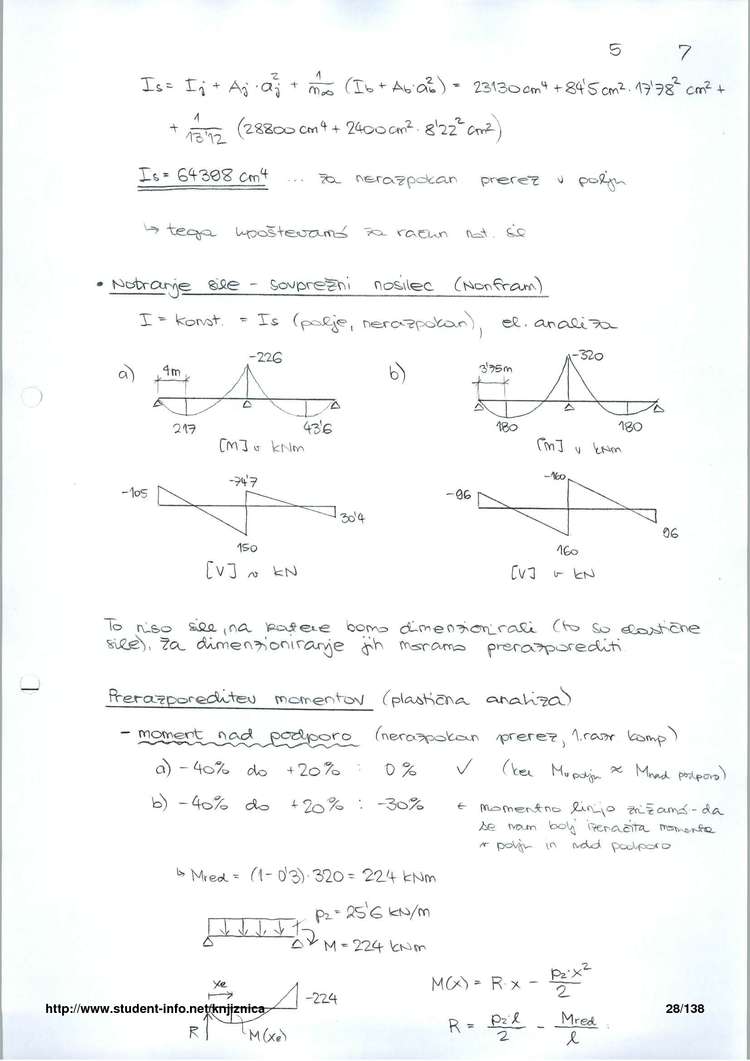 5 7
Is = Ij + Aj · aj² + 1/n∞ (Ib + Ab·ab²) = 23130 cm⁴ + 84'5 cm² · 17'78² cm² +
+ 1/13'12 (28800 cm⁴ + 2400 cm² · 8'22² cm²)
Is = 64398 cm⁴ ... za nerazpokan prerez v polju
↳ tega upoštevamo za račun not. sil
• Notranje sile – sovprežni nosilec (Nonfram)
I = konst. = Is (polje, nerazpokan), el. analiza
a) 4m -226 b) 3'75m -320
217 43'6 180 180
[M] v kNm [M] v kNm
-105 -74'7 30'4 -96 -160 96
150 160
[V] v kN [V] v kN
To niso sile, na katere bomo dimenzionirali (to so elastične
sile). Za dimenzioniranje jih moramo prerazporediti
Prerazporeditev momentov (plastična analiza)
– moment nad podporo (nerazpokan prerez, 1. razr komp)
a) – 40% do +20% : 0% ✓ (ker Mv polju ≈ Mnad podporo)
b) – 40% do +20% : -30% ← momentno linijo znižamo - da
se nam bolj izenačita momenta
v polju in nad podporo
↳ Mred = (1-0'3)·320 = 224 kNm
p2 = 25'6 kN/m
M = 224 kNm
xe -224
R M(xe)
M(x) = R·x – p2·x²/2
R = p2·l/2 – Mred/l
http://www.student-info.net/knjiznica 28/138